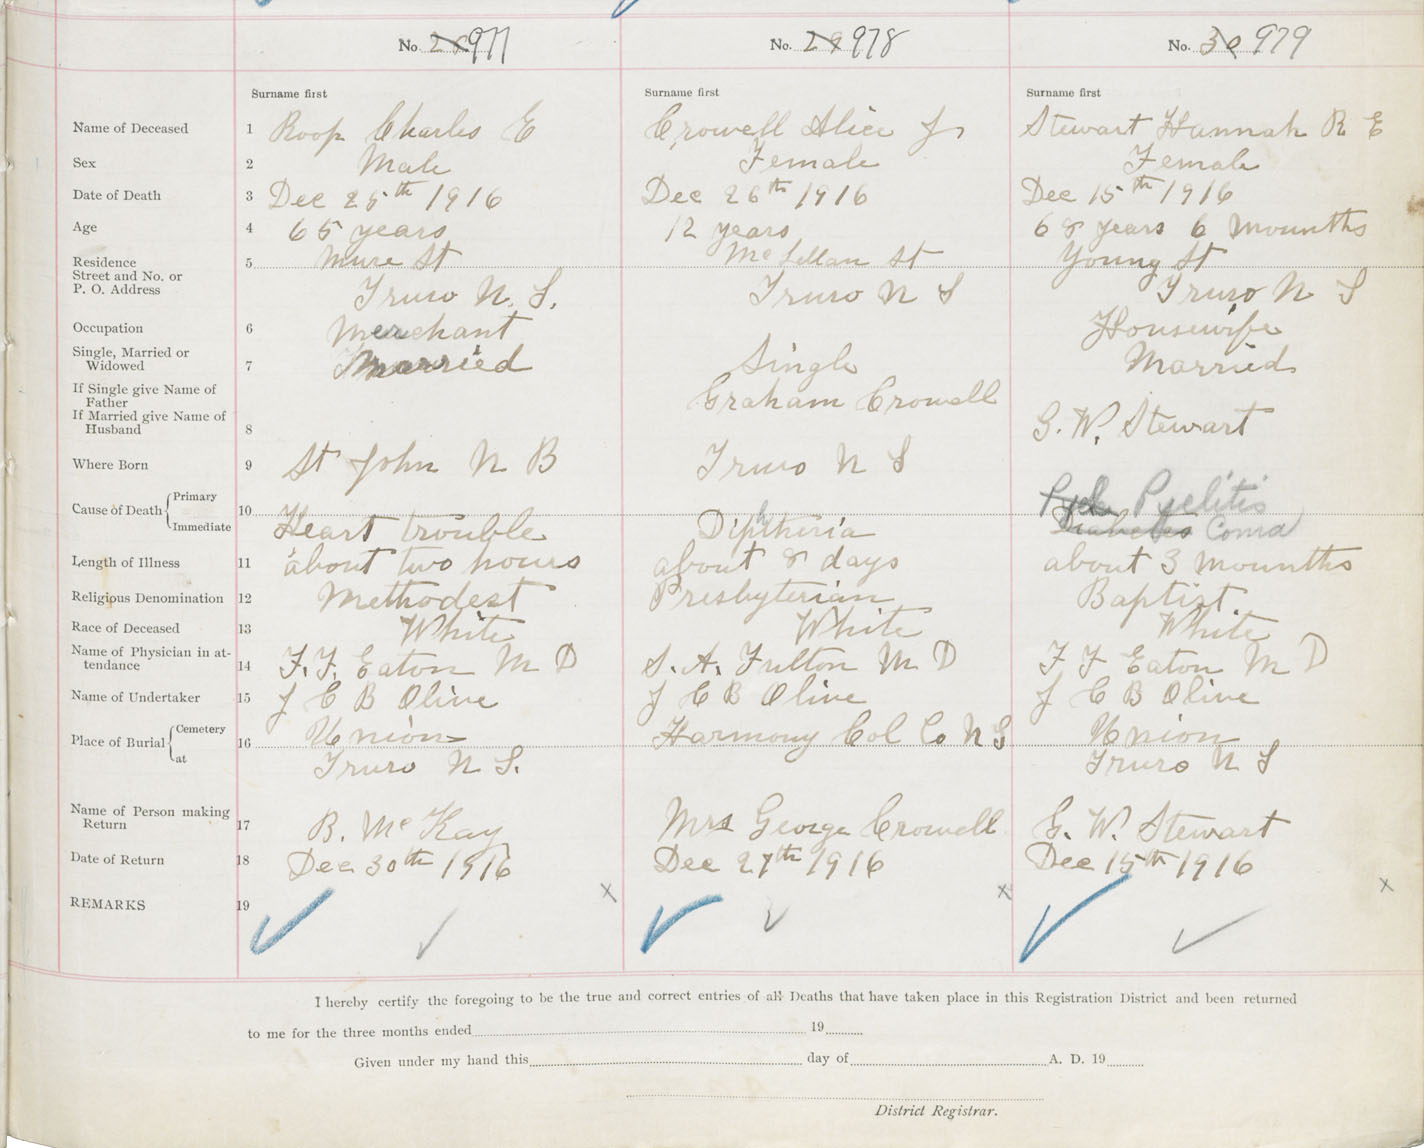 No. 28 977 No. 29 978 No. 30 979
Surname first Surname first Surname first
Name of Deceased 1 Roop Charles E Crowell Alice J. Stewart Hannah R E
Sex 2 Male Female Female
Date of Death 3 Dec 25th 1916 Dec 26th 1916 Dec 15th 1916
Age 4 65 years 12 years 68 years 6 mounths
Residence 5 Muir St McLellan St Young St
Street and No. or
P. O. Address Truro N. S. Truro N S Truro N S
Occupation 6 Merchant Housewife
Single, Married or
Widowed 7 Married Single Married
If Single give Name of
Father Graham Crowell
If Married give Name of
Husband 8 G. W. Stewart
Where Born 9 St John N B Truro N S
Cause of Death { Primary 10 Pyelitis
Immediate Heart trouble Diphtheria Diabetes Coma
Length of Illness 11 about two hours about 8 days about 3 mounths
Religious Denomination 12 Methodest Presbyterian Baptist.
Race of Deceased 13 White White White
Name of Physician in at-
tendance 14 F. F. Eaton M D S. A. Fulton M D F F Eaton M D
Name of Undertaker 15 J C B Olive J C B Olive J C B Olive
Place of Burial { Cemetery 16 Union Harmony Col Co N S Union
at Truro N S. Truro N S
Name of Person making
Return 17 B. McKay Mrs George Crowell G. W. Stewart
Date of Return 18 Dec 30th 1916 Dec 27th 1916 Dec 15th 1916
REMARKS 19
I hereby certify the foregoing to be the true and correct entries of all Deaths that have taken place in this Registration District and been returned
to me for the three months ended 19
Given under my hand this day of A. D. 19
District Registrar.